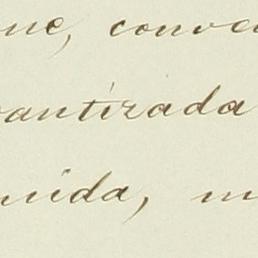 ne, conve
antirada
uida, m